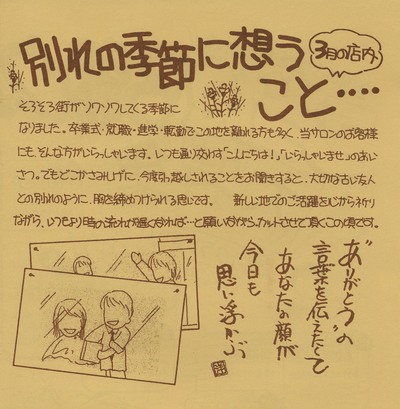 別れの季節に想う
こと‥‥
3月の店内
そろそろ街がソワソワしてくる季節に
なりました。卒業式・就職・進学・転勤でこの地を離れる方も多く、当サロンのお客様
にも、そんな方がいらっしゃいます。いつも通り交わす「こんにちは!」「いらっしゃいませ」のあい
さつ。でもどこかさみしげに、今度引っ越しされることをお聞きすると、大切な古い友人
との別れのように、胸を締めつけられる思いです。 新しい地でのご活躍を心から祈り
ながら、いつもより時の流れが遅くなれば…と願いながらカットさせて頂くこの頃です。
“ありがとう”の
言葉を伝えたくて
あなたの顔が
今日も
思い浮かぶ